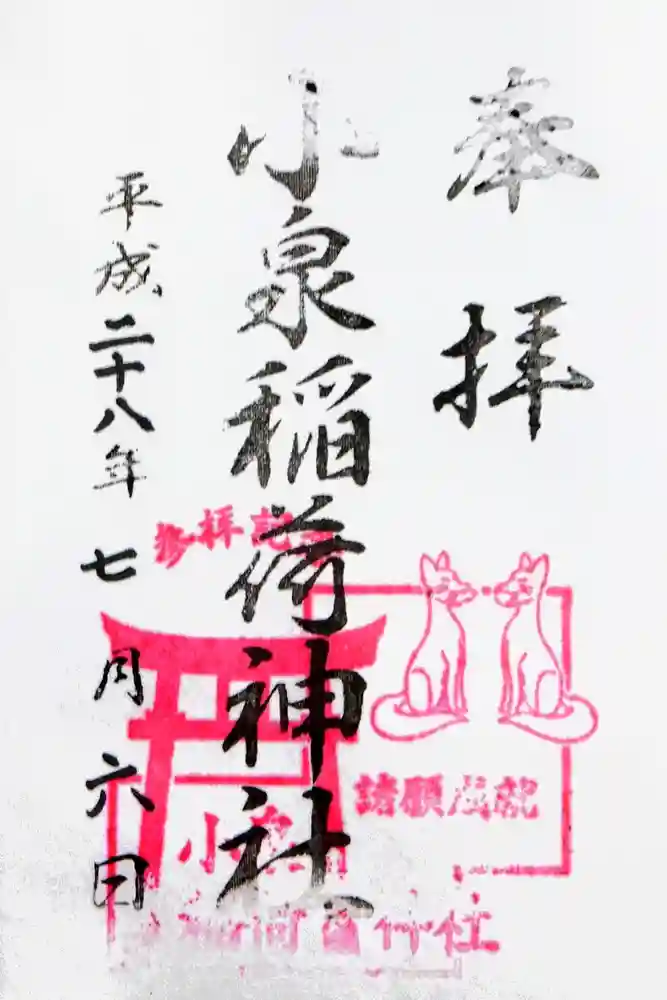 奉拝
小泉稲荷神社
平成二十八年七月六日
参拝記
諸願成就
小泉